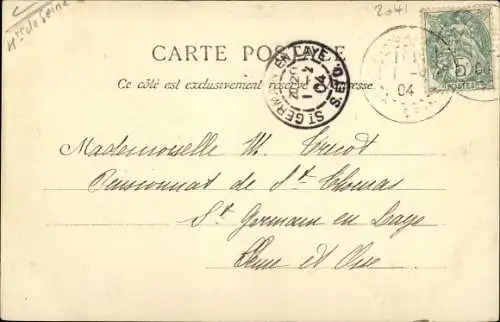 Hts de Seine
2041
CARTE POSTALE
Ce côté est exclusivement réservé à l'adresse
ST GERMAIN EN LAYE
S. ET O.
04
04
5c
POSTES
Mademoiselle M. Tricot
Pensionnat de St Thomas
St Germain en Laye
Seine et Oise